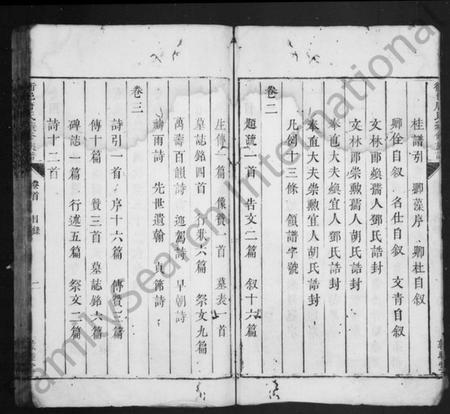 桂譜引 卿藻序 卿杜自叙
卿佺自叙 名仕自叙 文青自叙
文林郎煥孺人鄧氏誥封
文林郎崇勲孺人胡氏誥封
奉直大夫煥宜人鄧氏誥封
奉直大夫崇勲宜人胡氏誥封
凡例二十三條 領譜字號
卷二
題號一首 告文二篇 叙十六篇
卷首 目錄
生傳一首 像贊一首 墓表一首
墓誌銘四首 行略六篇 祭文九篇
萬壽百韻詩 迎鸞詩 早朝詩
禱雨詩 先世遺翰 貞節詩
卷三
詩引一首 序十六篇 傳贊三篇
傳十篇 贊三首 墓誌銘六篇
碑誌一篇 行述五篇 祭文二篇
詩十二首
FamilySearch International